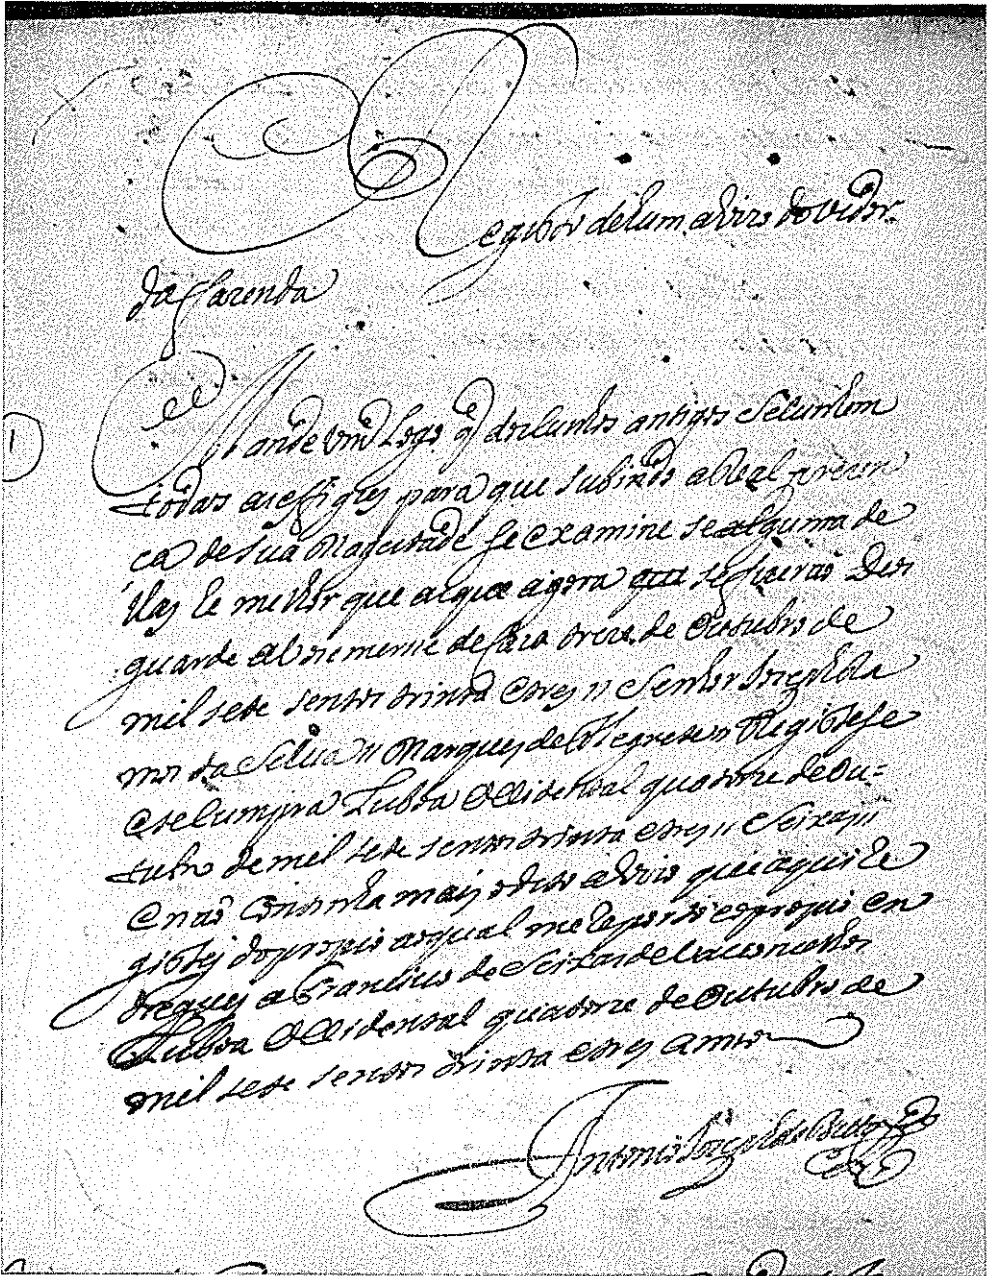 Registos de hum aviso do Vedor
da fazenda
1
Mande vm Logo q dos cunhos antigos se cunhem
todas as efigies para que subindo a Real prezen
ca de sua Magestade se examine se alguma de
llas he milhor que a que agora se fizerão Deos
guarde a vm de caza treze de Outubro de
mil sete sentos trinta e tres // Senhor Joze
mos da Silva // Marques de Alegrete // Registese
e se cumpra Lixboa Occidental quatorze de Ou=
tubro de mil sete sentos trinta e tres // Seixas //
E nao Continha mais o dito aviso que aqui re
gistey do propio ao qual me reporto e o propio en
treguey a Francisco de Seixas de Vasconcellos
Lixboa Occidental quatorze de Outubro de
mil sete sentos trinta e tres annos
Antonio